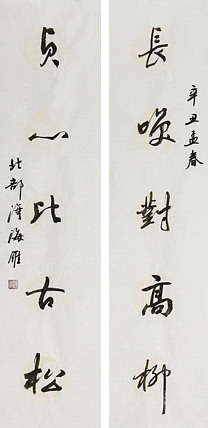 長嘯對高柳
辛丑孟春
貞心比古松
北部 海雁